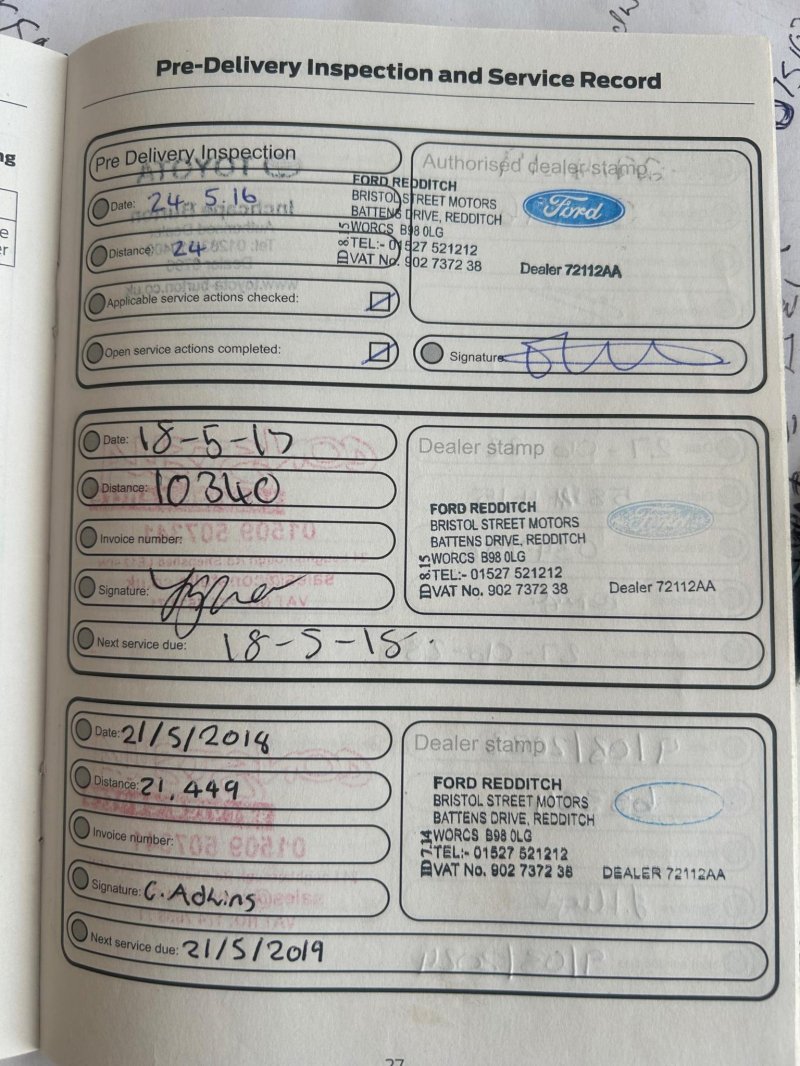 Pre-Delivery Inspection and Service Record
Pre Delivery Inspection
Date: 24-5.16
Distance: 24
Applicable service actions checked:
Open service actions completed:
Authorised dealer stamp
FORD REDDITCH
BRISTOL STREET MOTORS
BATTENS DRIVE, REDDITCH
WORCS B98 0LG
TEL:- 01527 521212
VAT No. 902 7372 38
ID 8.15
Ford
Dealer 72112AA
Signature
Date: 18-5-17
Distance: 10340
Invoice number:
Signature:
Next service due: 18-5-18.
Dealer stamp
FORD REDDITCH
BRISTOL STREET MOTORS
BATTENS DRIVE, REDDITCH
WORCS B98 0LG
TEL:- 01527 521212
VAT No. 902 7372 38
ID 8.15
Ford
Dealer 72112AA
Date: 21/5/2018
Distance: 21,449
Invoice number:
Signature: C. Adkins
Next service due: 21/5/2019
Dealer stamp
FORD REDDITCH
BRISTOL STREET MOTORS
BATTENS DRIVE, REDDITCH
WORCS B98 0LG
TEL:- 01527 521212
VAT No. 902 7372 38
ID 7.14
DEALER 72112AA
27